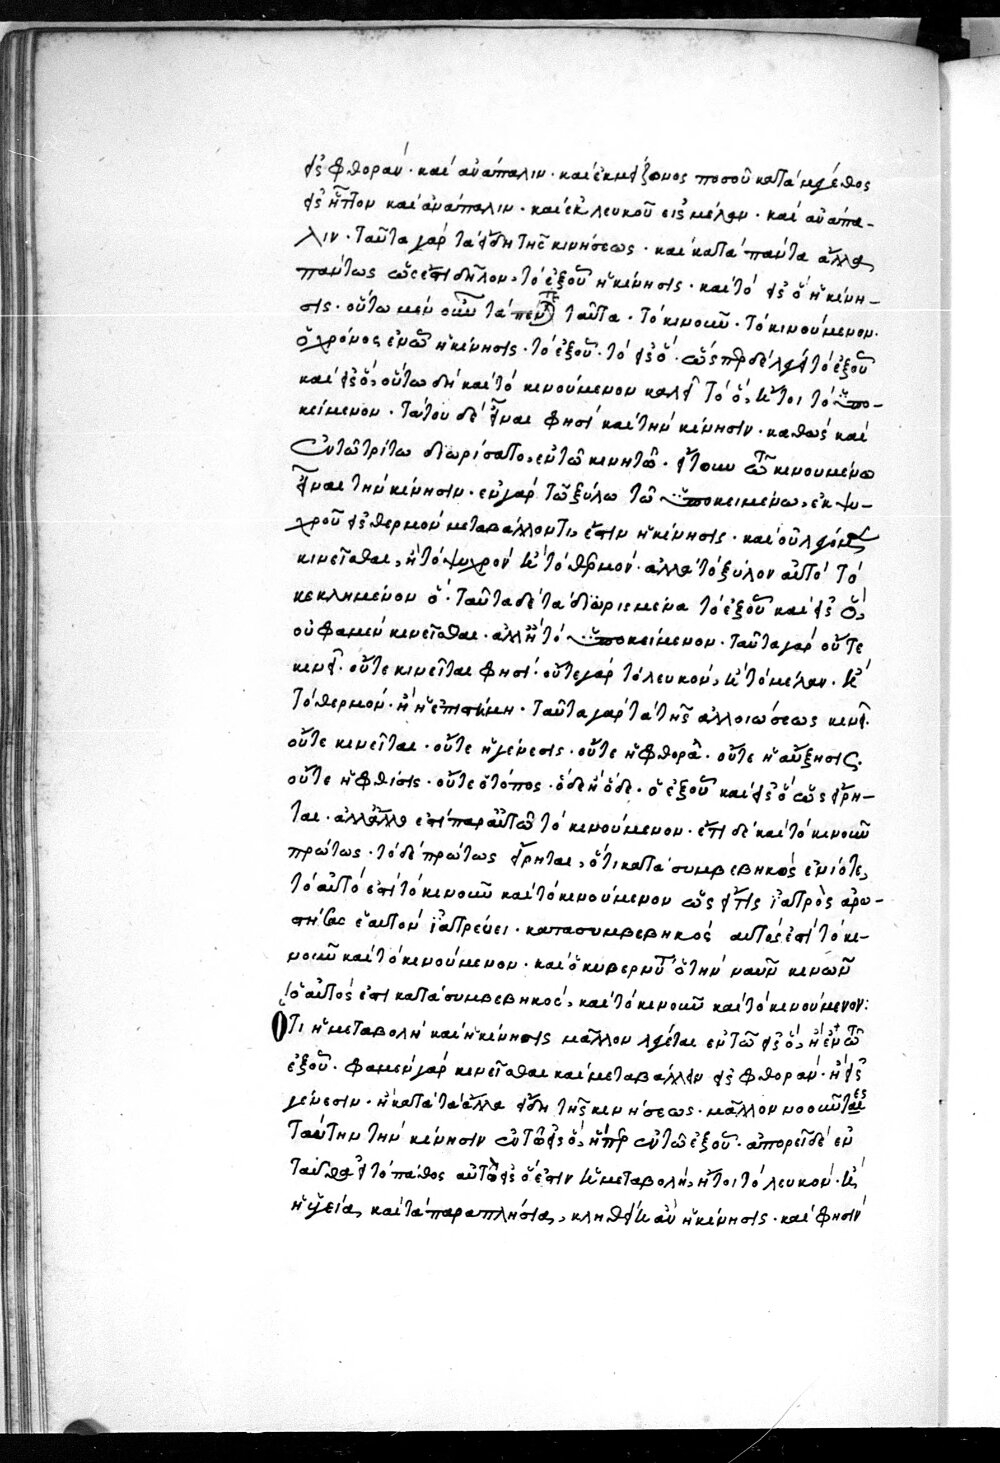 εἰς φθοράν· καὶ ἀνάπαλιν· καὶ ἐκ μείζονος ποσοῦ κατὰ μέγεθος
εἰς ἧττον καὶ ἀνάπαλιν· καὶ ἐκ λευκοῦ εἰς μέλαν· καὶ ἀνάπα-
λιν· ταῦτα γὰρ τὰ εἴδη τῆς κινήσεως· καὶ κατὰ πάντα ἄλλα
πάντως ὥς ἐστι δῆλον, τὸ ἐξ οὗ ἡ κίνησις· καὶ τὸ εἰς ὃ ἡ κίνη-
σις· οὕτω μὲν οὖν τὰ ταῦτα· τὸ κινοῦν· τὸ κινούμενον·
ὁ χρόνος ἐν ᾧ ἡ κίνησις· τὸ ἐξ οὗ· τὸ εἰς ὅ· ὥσπερ δὲ λέγει τὸ ἐξ οὗ
καὶ εἰς ὅ, οὕτω δὴ καὶ τὸ κινούμενον καλεῖ τὸ ὅ, ἤτοι τὸ ὑπο-
κείμενον· τούτου δὲ εἶναι φησὶ καὶ τὴν κίνησιν· καθὼς καὶ
ἐν τῷ τρίτῳ διωρίσατο, ἐν τῷ κινητῷ· ἤτοι ἐν τῷ κινουμένῳ
εἶναι τὴν κίνησιν· ἐν γὰρ τῷ ξύλῳ τῷ ὑποκειμένῳ, ἐκ ψυ-
χροῦ εἰς θερμὸν μεταβάλλοντι, ἔστιν ἡ κίνησις· καὶ οὐ λέγομεν
κινεῖσθαι, ἢ τὸ ψυχρὸν ἢ τὸ θερμόν· ἀλλὰ τὸ ξύλον αὐτὸ τὸ
κεκλημένον ὅ· ταῦτα δὲ τὰ διωρισμένα τὸ ἐξ οὗ καὶ εἰς ὅ,
οὔ φαμεν κινεῖσθαι· ἀλλ' ἢ τὸ ὑποκείμενον· ταῦτα γὰρ οὔτε
κινεῖ· οὔτε κινεῖται φησί· οὔτε γὰρ τὸ λευκὸν, ἢ τὸ μέλαν· ἢ
τὸ θερμόν· ἢ ἡ ἐπιστήμη· ταῦτα γὰρ τὰ τῆς ἀλλοιώσεως κινεῖ·
οὔτε κινεῖται· οὔτε ἡ γένεσις· οὔτε ἡ φθορά· οὔτε ἡ αὔξησις·
οὔτε ἡ φθίσις· οὔτε ὁ τόπος· ὅδε ἢ ὅδε· ὁ ἐξ οὗ καὶ εἰς ὃ ὡς εἴρη-
ται· ἀλλ' ἄλλο ἐστὶ παρ' αὐτῷ τὸ κινούμενον· ἔτι δὲ καὶ τὸ κινοῦν
πρώτως· τὸ δὲ πρώτως εἴρηται, ὅτι κατὰ συμβεβηκὸς ἐνίοτε,
τὸ αὐτό ἐστι τὸ κινοῦν καὶ τὸ κινούμενον ὡς εἴ τις ἰατρὸς ἀρω-
στήσας ἑαυτὸν ἰατρεύει· κατὰ συμβεβηκὸς αὐτός ἐστι τὸ κι-
νοῦν καὶ τὸ κινούμενον· καὶ ὁ κυβερνήτης ὁ τὴν ναῦν κινῶν
ὁ αὐτός ἐστι κατὰ συμβεβηκὸς, καὶ τὸ κινοῦν καὶ τὸ κινούμενον:
Ὅτι ἡ μεταβολὴ καὶ ἡ κίνησις μᾶλλον λέγεται ἐν τῷ εἰς ὅ, ἢ ἐν τῷ
ἐξ οὗ· φαμὲν γὰρ κινεῖσθαι καὶ μεταβάλλειν εἰς φθοράν· ἢ εἰς
γένεσιν· ἢ κατὰ τὰ ἄλλα εἴδη τῆς κινήσεως· μᾶλλον νοοῦντες
ταύτην τὴν κίνησιν ἐν τῷ εἰς ὅ, ἤπερ ἐν τῷ ἐξ οὗ· ἀπορεῖ δὲ ἐν
ταῦθα εἰ τὸ πάθος αὐτὸ εἰς ὅ ἐστιν ἡ μεταβολὴ, ἤτοι τὸ λευκόν· ἢ
ἡ ὑγεία, καὶ τὰ παραπλήσια, κληθείη ἂν ἡ κίνησις· καὶ φησὶν